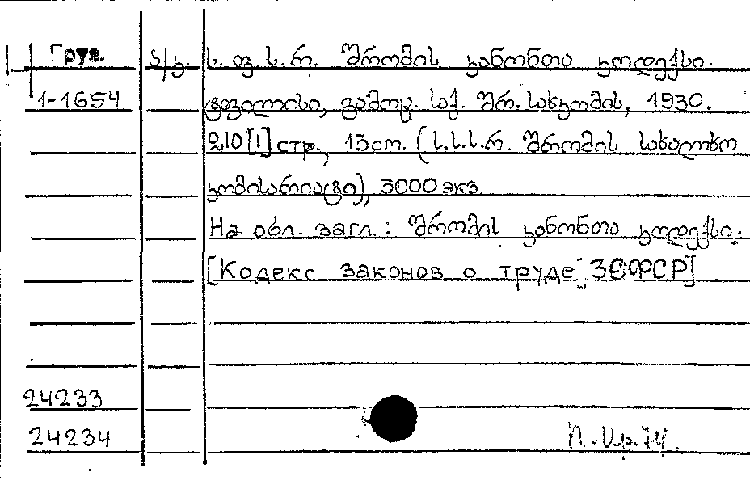 Груз. ა/კ. ს.ფ.ს.რ. შრომის კანონთა კოდექსი.
1-1654 ტფილისი, გამოც. საქ. შრ. სახკომის, 1930.
210[1]стр., 13cm. (ს.ს.ს.რ. შრომის სახალხო
კომისარიატი), 3000 экз.
На обл. загл.: შრომის კანონთა კოდექსი.
[Кодекс законов о труде ЗСФСР]
24233
24234